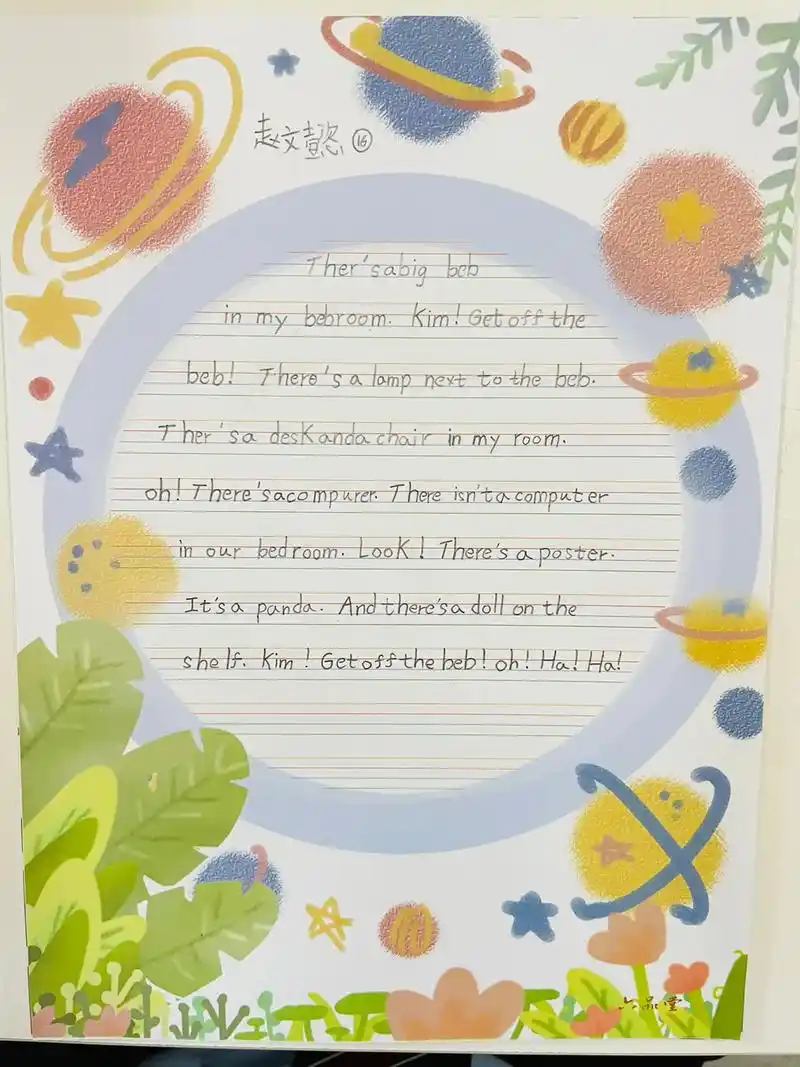 赵文懿 ⑯
Ther's a big beb
in my bebroom. Kim! Get off the
beb! There's a lamp next to the beb.
Ther's a desk and a chair in my room.
oh! There's a compurer. There isn't a computer
in our bedroom. Look! There's a poster.
It's a panda. And there's a doll on the
shelf. Kim! Get off the beb! oh! Ha! Ha!
六品堂